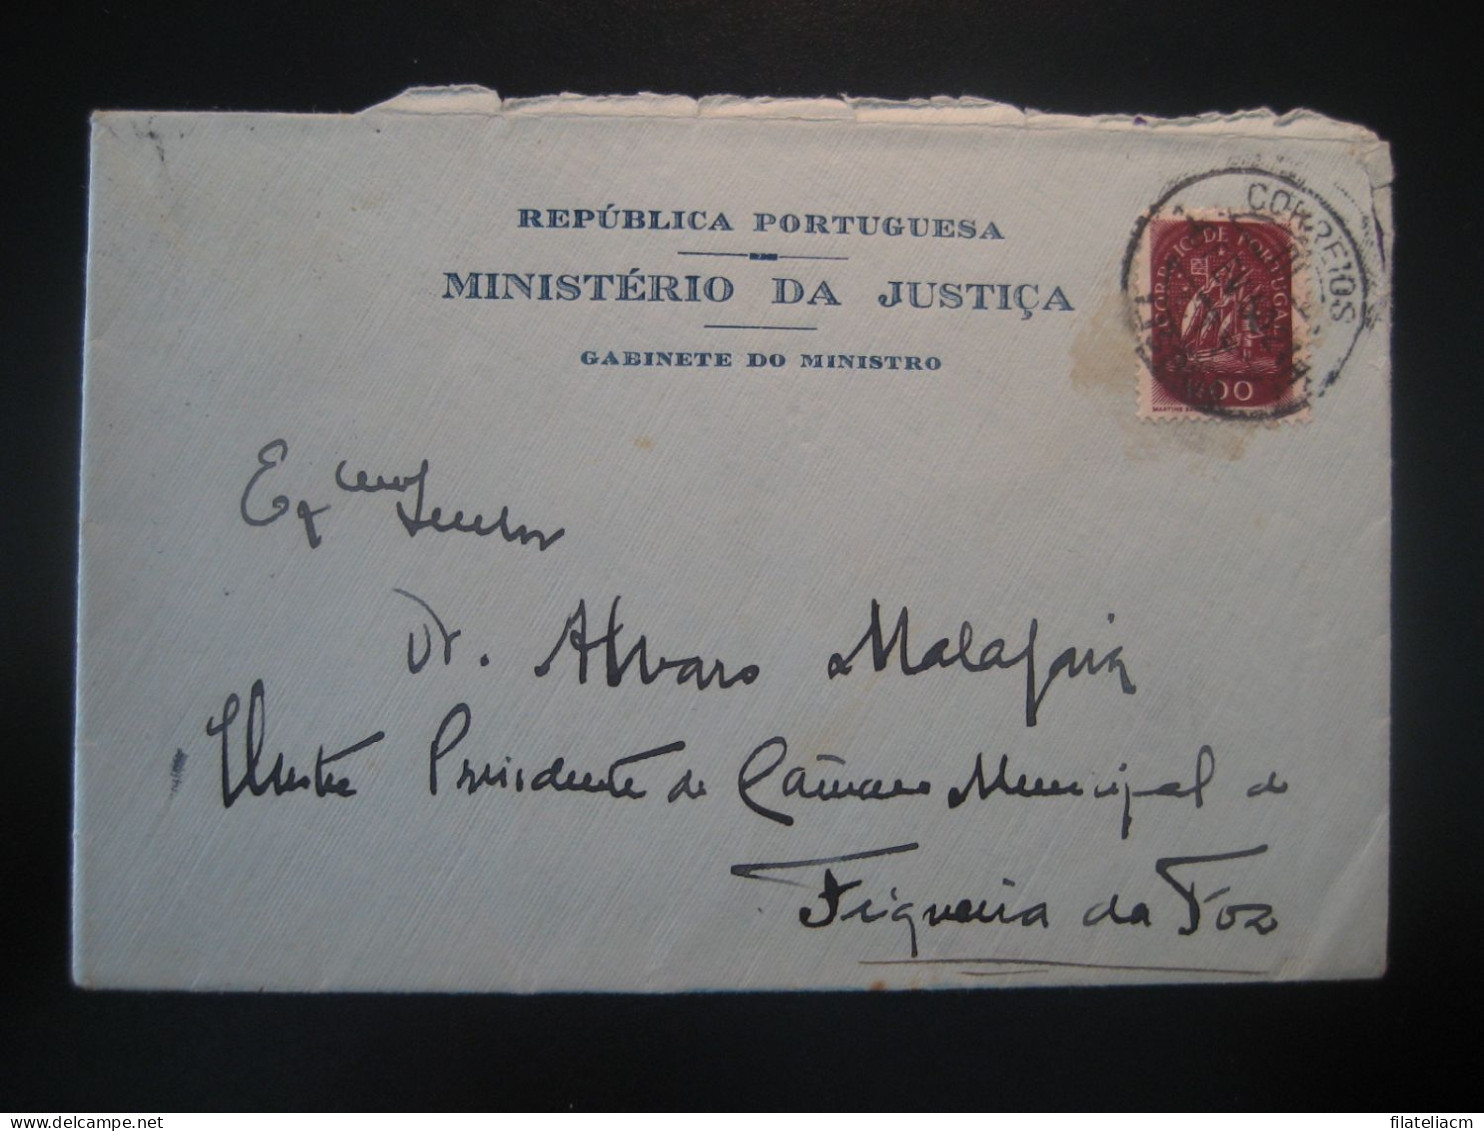 REPÚBLICA PORTUGUESA
MINISTÉRIO DA JUSTIÇA
GABINETE DO MINISTRO
CORREIOS
CORREIO DE PORTUGAL
00
Ex.mo Senhor
Dr. Alvaro Malafaia
Ilustre Presidente da Câmara Municipal da
Figueira da Foz
filateliacm